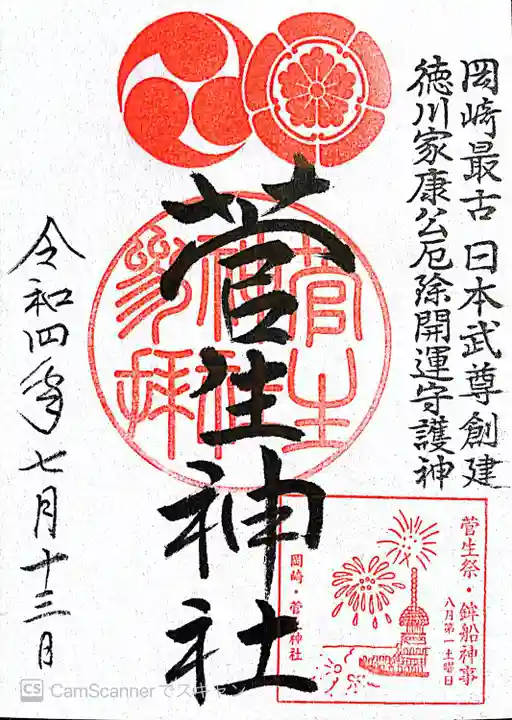 岡崎最古 日本武尊創建
徳川家康公厄除開運守護神
菅生神社
菅生神社参拝
令和四年七月十三日
菅生祭・鉾船神事
八月第一土曜日
岡崎・菅生神社
CS CamScannerでスキャン